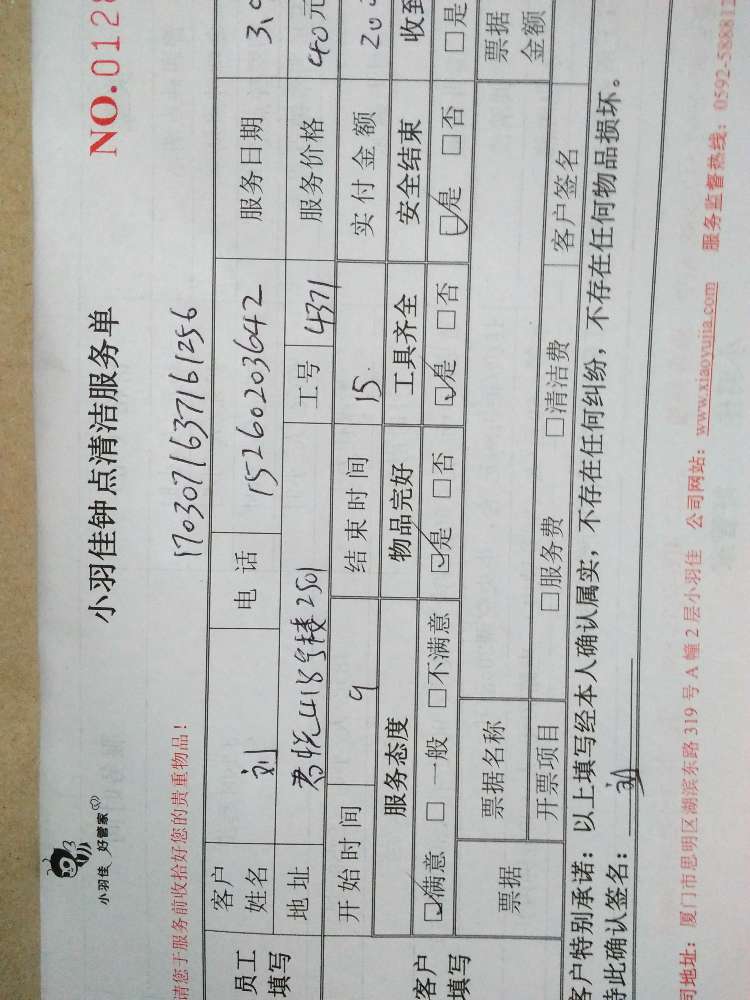 小羽佳 好管家
小羽佳钟点清洁服务单
NO.0128
请您于服务前收拾好您的贵重物品！
1703071637161256
员工填写
客户姓名 刘 电话 15260203642 服务日期 3.
地址 18号楼2501 工号 4371 服务价格 40元
开始时间 9 结束时间 15 实付金额 20
客户填写
服务态度 物品完好 工具齐全 安全结束 收到
☑满意 □一般 □不满意 ☑是 □否 ☑是 □否 ☑是 □否 □是
票据 票据名称 票据金额
开票项目 □服务费 □清洁费 客户签名
客户特别承诺：以上填写经本人确认属实，不存在任何纠纷，不存在任何物品损坏。
特此确认签名：刘
司地址：厦门市思明区湖滨东路319号A幢2层小羽佳 公司网站：www.xiaoyujia.com 服务监督热线：0592-588812